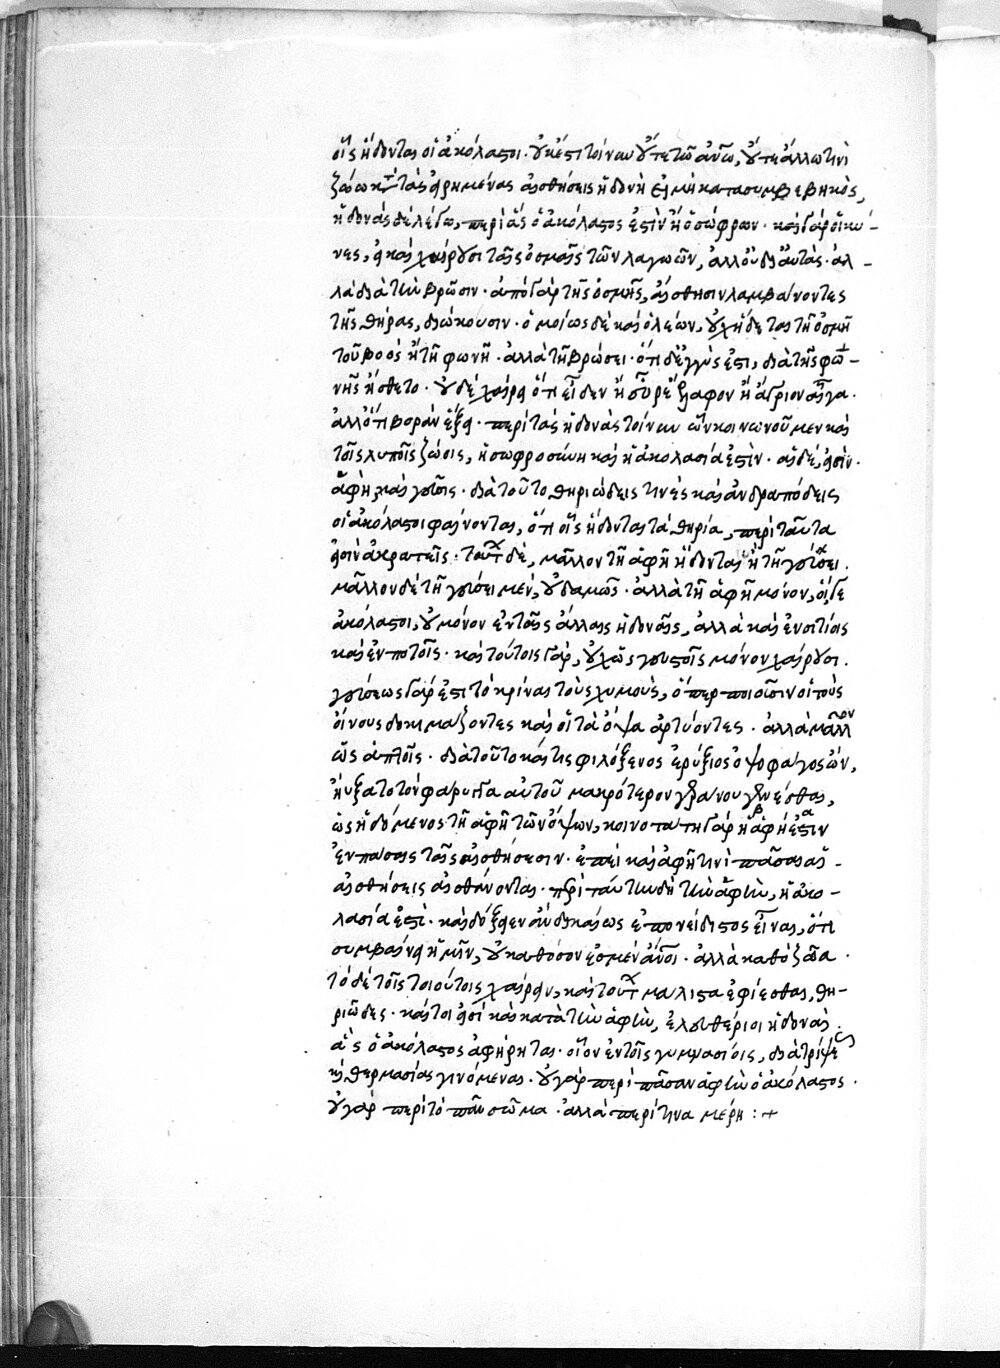 οἷς ἥδονται οἱ ἀκόλαστοι. οὐκ ἔστι τοίνυν οὔτε τῷ ἀνῳ, οὔτε ἄλλῳ τινὶ
ζώῳ κτ τὰς εἰρημένας αἰσθήσεις ἡδονὴ εἰ μὴ κατασυμβεβηκὸς,
ἡδονὰς δὲ λέγω, περὶ ἃς ὁ ἀκόλαστος ἐστὶν ἢ ὁ σώφρων. καὶ γὰρ οἱ κύ-
νες, εἰ καὶ χαίρουσι ταῖς ὀσμαῖς τῶν λαγωῶν, ἀλλ' οὐ δι' αὐτάς. ἀλ-
λὰ διὰ τὴν βρῶσιν. ἀπὸ γὰρ τῆς ὀσμῆς, αἴσθησιν λαμβάνοντες
τῆς θήρας, διώκουσιν. ὁμοίως δὲ καὶ ὁ λέων, οὐχ ἥδεται τῇ ὀσμῇ
τοῦ βοὸς ἢ τῇ φωνῇ. ἀλλὰ τῇ βρώσει. ὅτι δ' ἐγγύς ἐστι, διὰ τῆς φω-
νῆς ᾔσθετο. οὐδὲ χαίρει ὅτι εἶδεν ἢ εὗρε ἔλαφον ἢ ἄγριον αἶγα.
ἀλλ' ὅτι βορὰν ἕξει. περὶ τὰς ἡδονὰς τοίνυν ὧν κοινωνοῦμεν καὶ
τοῖς λοιποῖς ζώοις, ἡ σωφροσύνη καὶ ἡ ἀκολασία ἐστὶν. αἱ δέ, εἰσὶν.
ἁφὴ καὶ γεῦσις. διὰ τοῦτο θηριώδεις τινὲς καὶ ἀνδραπόδεις
οἱ ἀκόλαστοι φαίνονται, ὅτι οἷς ἥδονται τὰ θηρία, περὶ ταῦτα
εἰσὶν ἀκρατεῖς. τούτ δὲ, μᾶλλον τῇ ἁφῇ ἥδονται ἢ τῇ γεύσει.
μᾶλλον δὲ τῇ γεύσει μέν, οὐδαμῶς. ἀλλὰ τῇ ἁφῇ μόνον, οἵ γε
ἀκόλαστοι, οὐ μόνον ἐν ταῖς ἄλλαις ἡδοναῖς, ἀλλὰ καὶ ἐν σιτίοις
καὶ ἐν ποτοῖς. καὶ τούτοις γὰρ, οὐχ ὡς γευστοῖς μόνον χαίρουσι.
γεύσεως γάρ ἐστι τὸ κρίναι τοὺς χυμούς, ὅπερ ποιοῦσιν οἱ τοὺς
οἴνους δοκιμάζοντες καὶ οἱ τὰ ὄψα ἀρτύοντες. ἀλλὰ μᾶλλον
ὡς ἁπτοῖς. διὰ τοῦτο καί τις φιλόξενος ἐρύξιος ὀψοφάγος ὤν,
ηὔξατο τὸν φάρυγγα αὐτοῦ μακρότερον γεράνου γενέσθαι,
ὡς ἡδόμενος τῇ ἁφῇ τῶν ὄψων, κοινοτάτη γὰρ ἡ ἁφή ἐστιν
ἐν πάσαις ταῖς αἰσθήσεσιν. ἐπεὶ καὶ ἁφῇ τινὶ πᾶσαι αἱ
αἰσθήσεις αἰσθάνονται. περὶ ταύτην δὴ τὴν ἁφὴν, ἡ ἀκο-
λασία ἐστὶ. καὶ δόξειεν ἂν δικαίως ἐπονείδιστος εἶναι, ὅτι
συμβαίνει ἡμῖν, οὐ καθόσον ἐσμὲν ἄνοι. ἀλλὰ καθὸ ζῶα.
τὸ δὲ τοῖς τοιούτοις χαίρειν, καὶ τούτ μάλιστα ἐφίεσθαι, θη-
ριῶδες. καίτοι εἰσὶ καὶ κατὰ τὴν ἁφὴν, ἐλευθέριοι ἡδοναὶ.
ἃς ὁ ἀκόλαστος ἀφῄρηται. οἷον ἐν τοῖς γυμνασίοις, διὰ τρίψεως
καὶ θερμασίας γινόμεναι. οὐ γὰρ περὶ πᾶσαν ἁφὴν ὁ ἀκόλαστος.
οὐ γὰρ περὶ τὸ πᾶν σῶμα. ἀλλὰ περὶ τινα μέρη : +